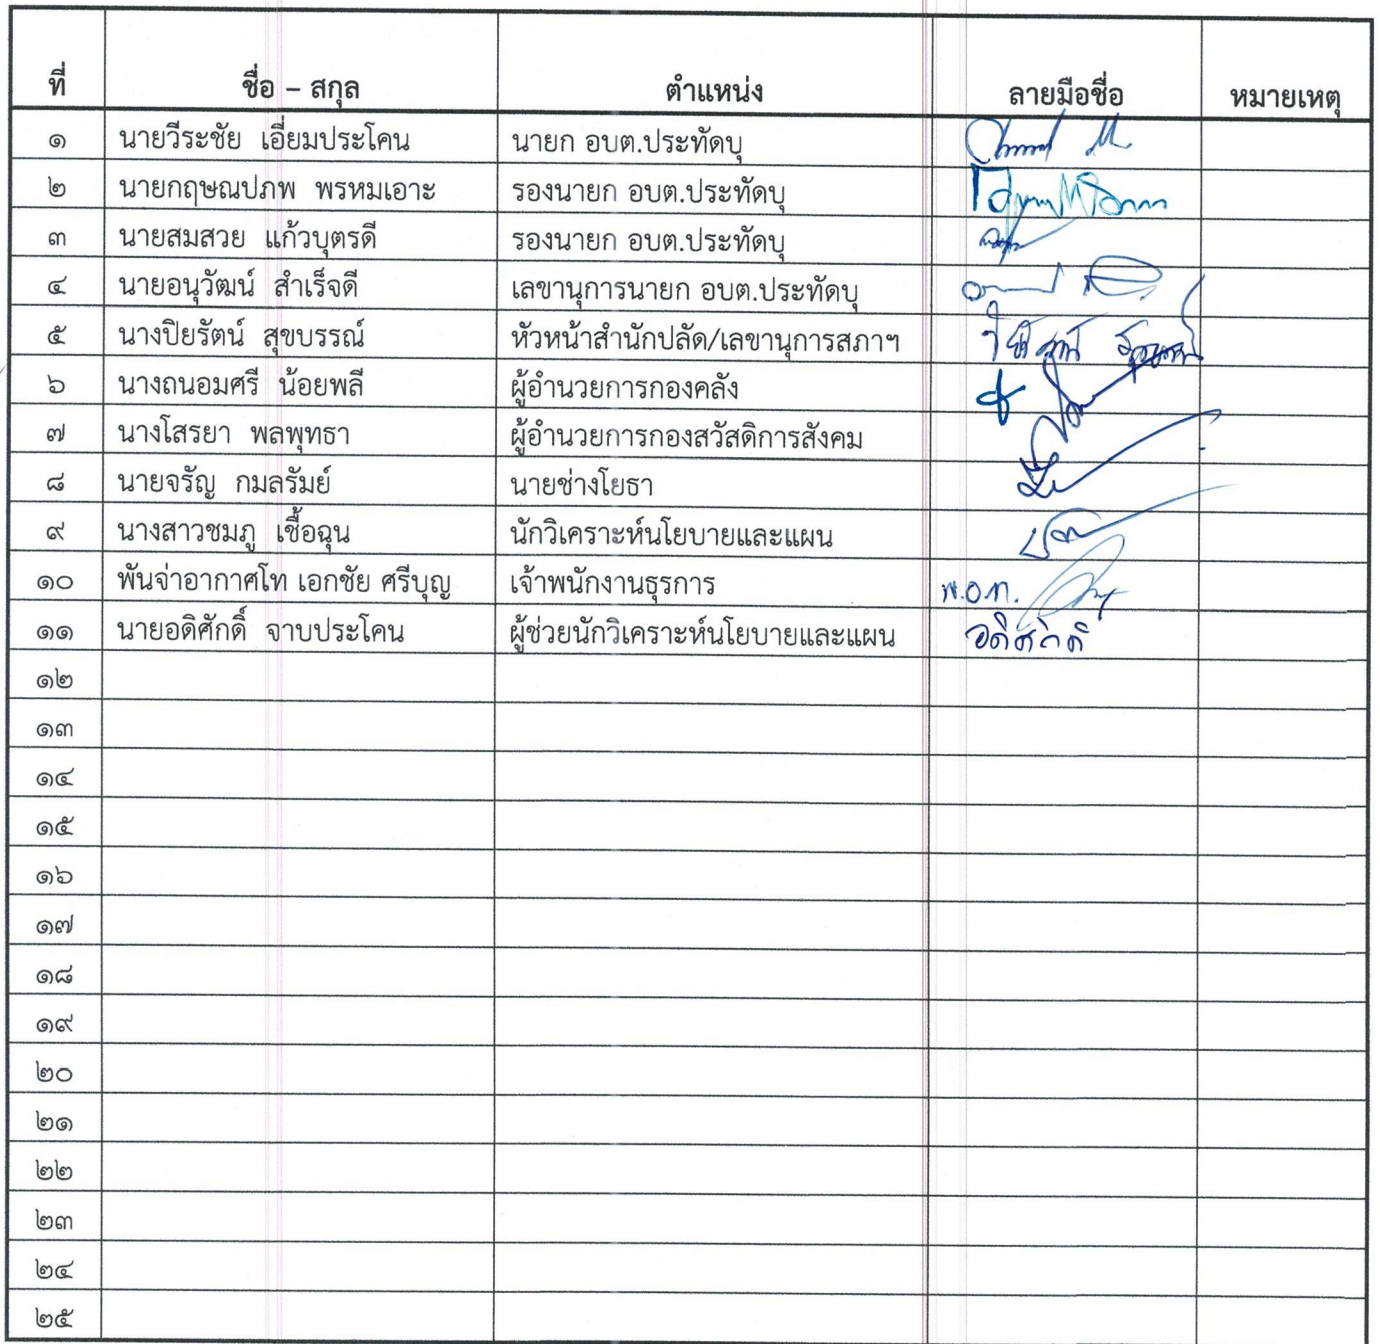 ที่ ชื่อ – สกุล ตำแหน่ง ลายมือชื่อ หมายเหตุ
๑ นายวีระชัย เอี่ยมประโคน นายก อบต.ประทัดบุ
๒ นายกฤษณปภพ พรหมเอาะ รองนายก อบต.ประทัดบุ
๓ นายสมสวย แก้วบุตรดี รองนายก อบต.ประทัดบุ
๔ นายอนุวัฒน์ สำเร็จดี เลขานุการนายก อบต.ประทัดบุ
๕ นางปิยรัตน์ สุขบรรณ์ หัวหน้าสำนักปลัด/เลขานุการสภาฯ
๖ นางถนอมศรี น้อยพลี ผู้อำนวยการกองคลัง
๗ นางโสรยา พลพุทธา ผู้อำนวยการกองสวัสดิการสังคม
๘ นายจรัญ กมลรัมย์ นายช่างโยธา
๙ นางสาวชมภู เชื้อฉุน นักวิเคราะห์นโยบายและแผน
๑๐ พันจ่าอากาศโท เอกชัย ศรีบุญ เจ้าพนักงานธุรการ พ.อ.ท.
๑๑ นายอดิศักดิ์ จาบประโคน ผู้ช่วยนักวิเคราะห์นโยบายและแผน อดิศักดิ์
๑๒
๑๓
๑๔
๑๕
๑๖
๑๗
๑๘
๑๙
๒๐
๒๑
๒๒
๒๓
๒๔
๒๕